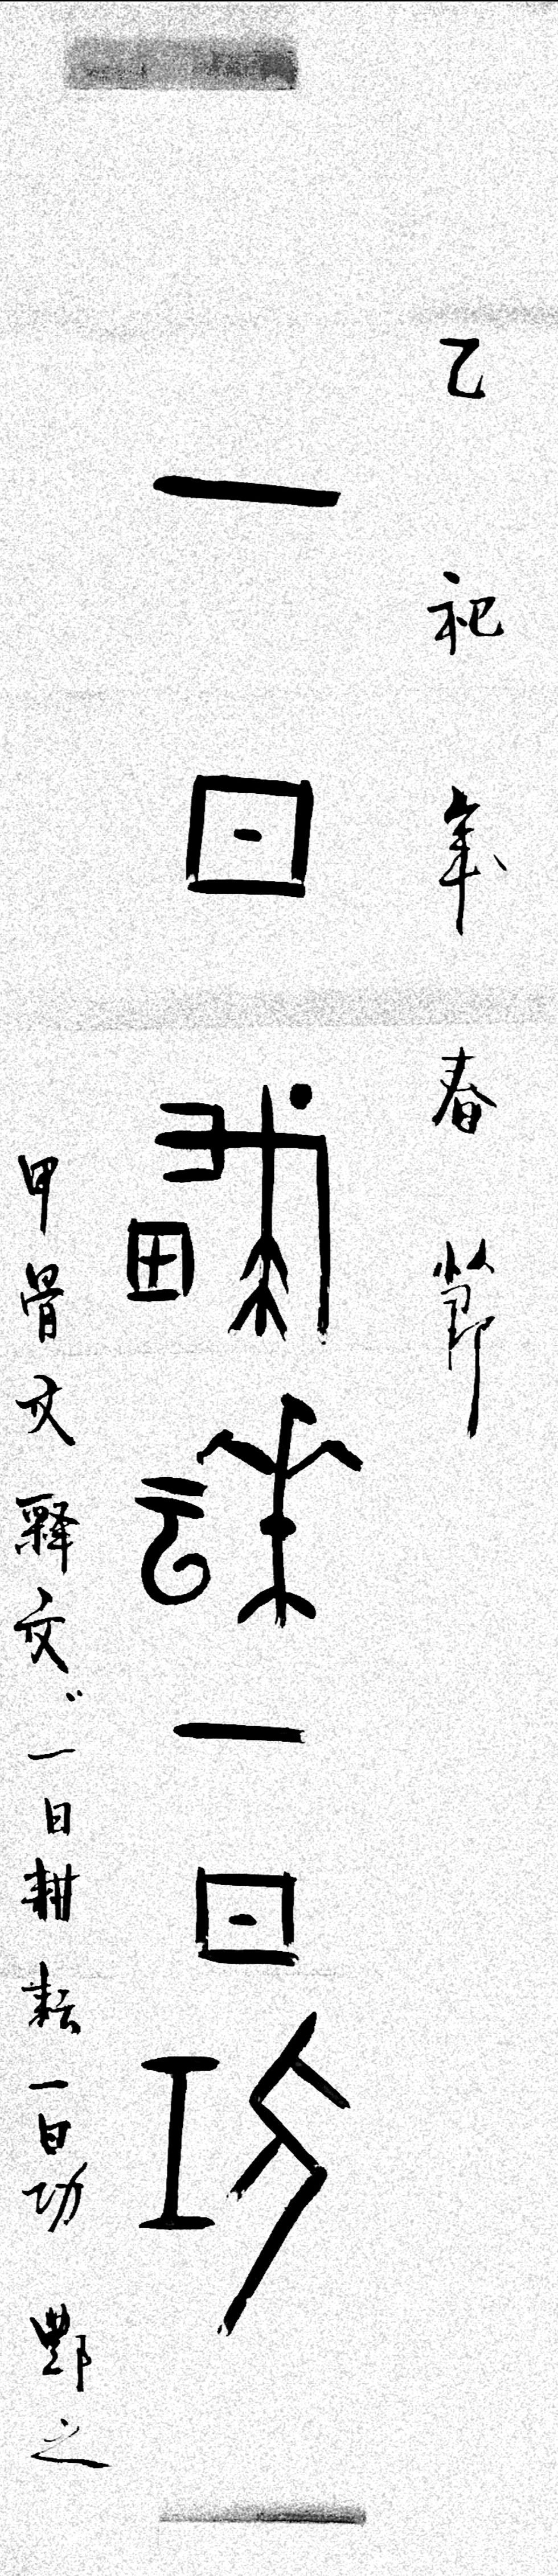 乙祀年春節
一日耕耘一日功
甲骨文釋文：一日耕耘一日功 酆之